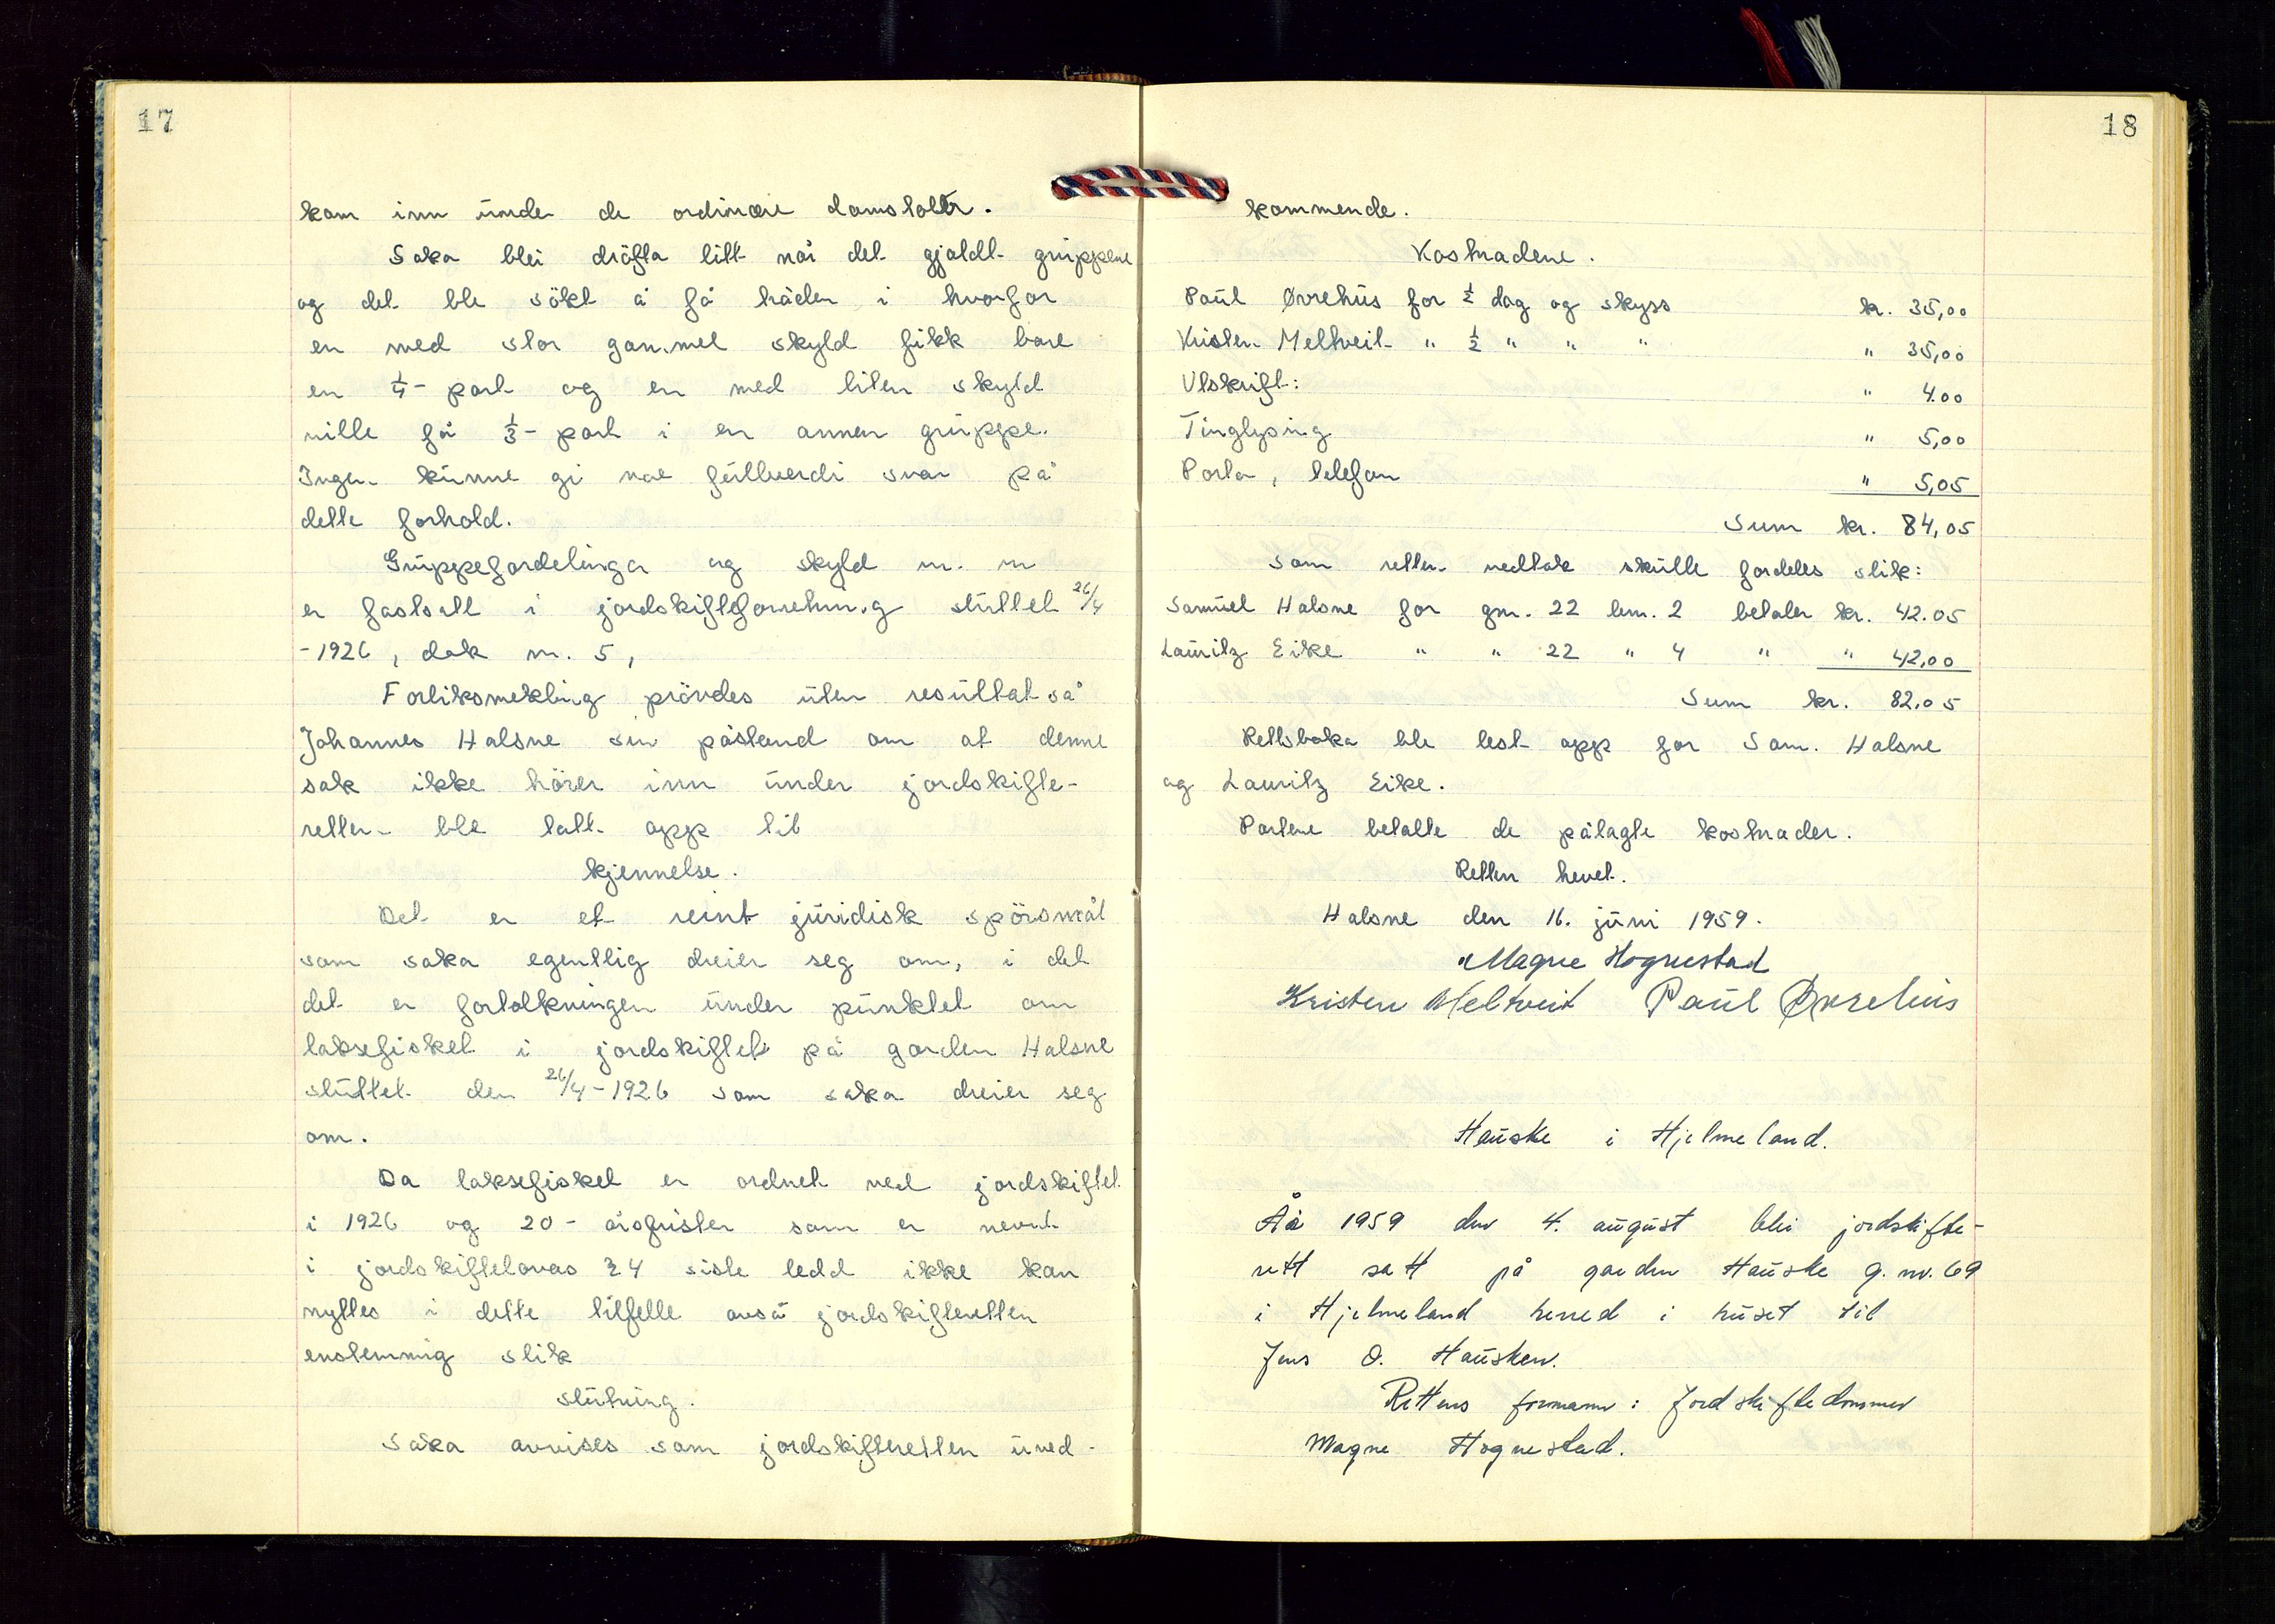 17
kom inn under de ordinære domstoler.
Saka blei dröfta litt når det gjaldt gruppene
og det ble sökt å få håden i hvorfor
en med stor gammel skyld fikk bare
en 1/4 - part og en med liten skyld
ville få 1/3 - part i en annen gruppe.
Ingen kunne gi noe fullverdi svar på
dette forhold.
Gruppefordelinga og skyld m. m
er fastsatt i jordskifteforretning sluttet 26/4
-1926, dok nr. 5,
Forliksmekling prövdes uten resultat så
Johannes Halsne sin påstand om at denne
sak ikke hörer inn under jordskifte-
retten ble tatt opp til
kjennelse.
Det er et reint juridisk spörsmål
som saka egentlig dreier seg om, i det
det er fortolkningen under punktet om
laksefisket i jordskiftet på garden Halsne
sluttet den 26/4-1926 som saka dreier seg
om.
Da laksefisket er ordnet ved jordskiftet
i 1926 og 20 - årsfristen som er nevnt
i jordskiftelovas § 4 siste ledd ikke kan
nyttes i dette tilfelle avsa jordskifteretten
enstemmig slik
slutning.
Saka avvises som jordskifteretten uved-
18
kommende.
Kostnadene.
Paul Øvrehus for 1/2 dag og skyss kr. 35,00
Kristen Meltveit " 1/2 " " " " 35,00
Utskrift: " 4.00
Tinglysing " 5,00
Porto, telefon " 5,05
Sum kr. 84,05
Som retten vedtok skulle fordeles slik:
Samuel Halsne for gnr. 22 bnr. 2 betaler kr. 42.05
Lauritz Eike " " 22 " 4 " " 42,00
Sum kr. 82,05
Rettsboka ble lest opp for Sam. Halsne
og Lauritz Eike.
Partene betalte de pålagte kostnader.
Retten hevet.
Halsne den 16. juni 1959.
Magne Hognestad
Kristen Meltveit Paul Øvrehus
Hauske i Hjelmeland.
År 1959 den 4. august blei jordskifte-
rett satt på garden Hauske g. nr. 69
i Hjelmeland herred i huset til
Jens O. Hausken.
Rettens formann: Jordskiftedommer
Magne Hognestad.